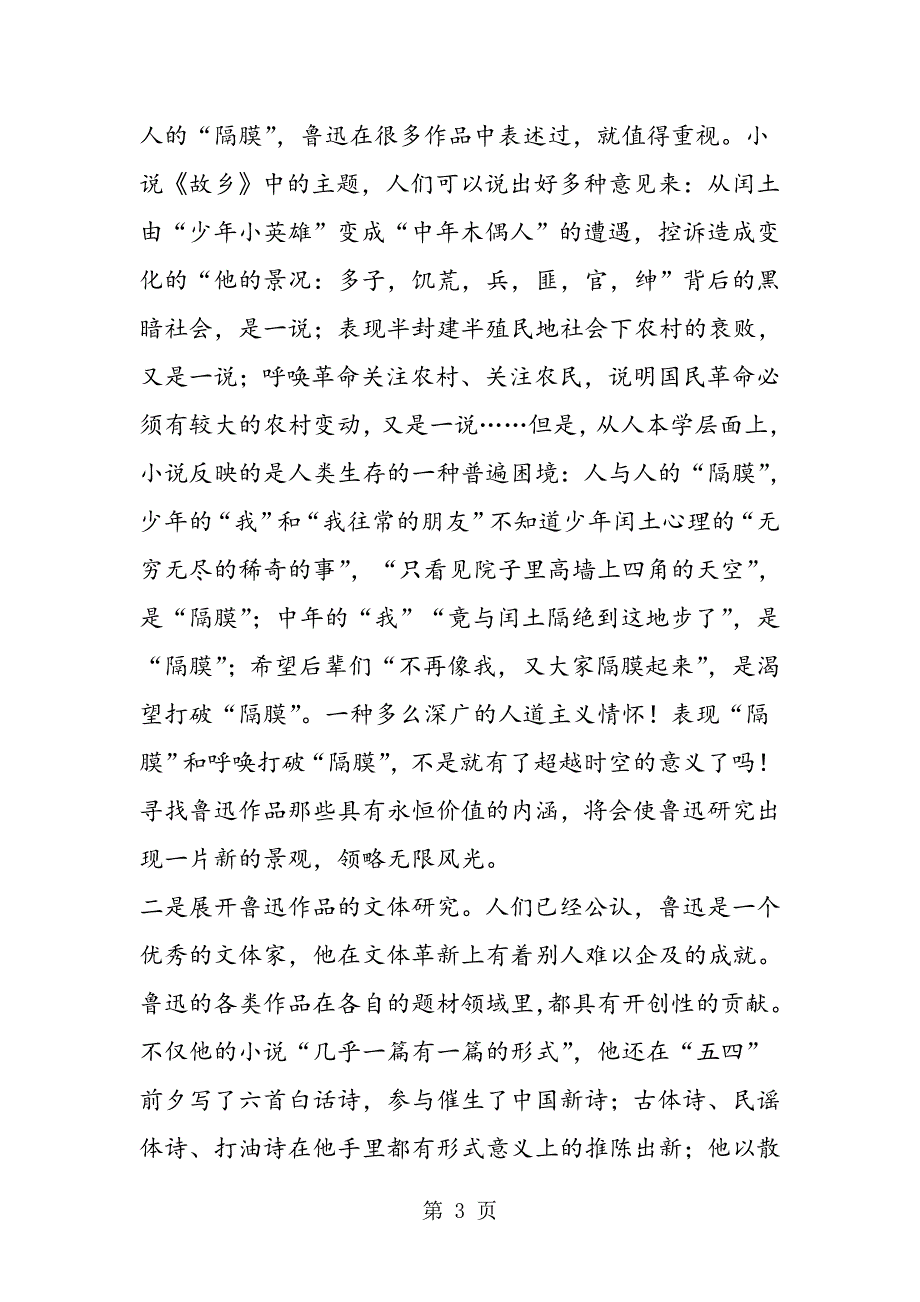 人的“隔膜”，鲁迅在很多作品中表述过，就值得重视。小
说《故乡》中的主题，人们可以说出好多种意见来：从闰土
由“少年小英雄”变成“中年木偶人”的遭遇，控诉造成变
化的“他的景况：多子，饥荒，兵，匪，官，绅”背后的黑
暗社会，是一说；表现半封建半殖民地社会下农村的衰败，
又是一说；呼唤革命关注农村、关注农民，说明国民革命必
须有较大的农村变动，又是一说……但是，从人本学层面上，
小说反映的是人类生存的一种普遍困境：人与人的“隔膜”，
少年的“我”和“我往常的朋友”不知道少年闰土心理的“无
穷无尽的稀奇的事”，“只看见院子里高墙上四角的天空”，
是“隔膜”；中年的“我”“竟与闰土隔绝到这地步了”，是
“隔膜”；希望后辈们“不再像我，又大家隔膜起来”，是渴
望打破“隔膜”。一种多么深广的人道主义情怀！表现“隔
膜”和呼唤打破“隔膜”，不是就有了超越时空的意义了吗！
寻找鲁迅作品那些具有永恒价值的内涵，将会使鲁迅研究出
现一片新的景观，领略无限风光。
二是展开鲁迅作品的文体研究。人们已经公认，鲁迅是一个
优秀的文体家，他在文体革新上有着别人难以企及的成就。
鲁迅的各类作品在各自的题材领域里，都具有开创性的贡献。
不仅他的小说“几乎一篇有一篇的形式”，他还在“五四”
前夕写了六首白话诗，参与催生了中国新诗；古体诗、民谣
体诗、打油诗在他手里都有形式意义上的推陈出新；他以散
第 3 页